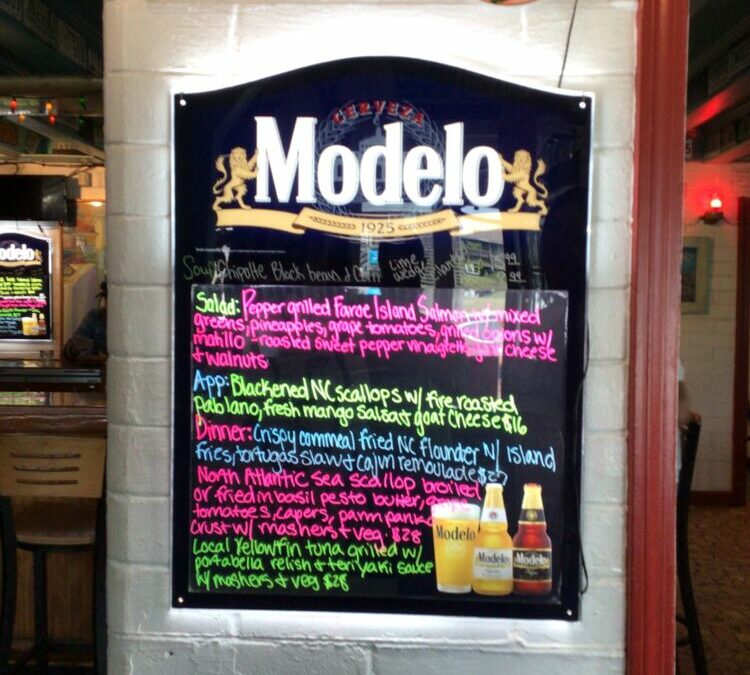 CERVEZA
Modelo
1925
Soup: Chipotle Black bean & Corn Lime
wedge
Salad: Pepper grilled Faroe Island Salmon mixed
greens, pineapples, grape tomatoes, onions w/
roasted sweet pepper cheese
& walnuts
App: Blackened NC scallops w/ fire roasted
pablano, fresh mango salsa & goat cheese $16
Dinner: Crispy cornmeal fried NC flounder w/ island
fries, tortugas slaw & cajun remoulade
North Atlantic sea scallop broiled
or fried in basil pesto butter, grape
tomatoes, capers, parm panko
crust w/ mashers & veg $28
Local Yellowfin tuna grilled w/
portabella relish & teriyaki sauce
w/ mashers & veg $28
Modelo
Modelo
MODELO
Modelo